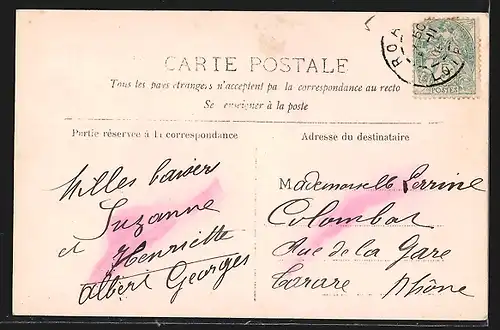 CARTE POSTALE
Tous les pays étrangers n'acceptent pa la correspondance au recto
Se enseigner à la poste
Partie réservée à la correspondance
Adresse du destinataire
Milles baisers
Suzanne
et Henriette
Albert Georges
Mademoiselle Perrine
Colombat
Rue de la Gare
Tarare Rhône
POSTES